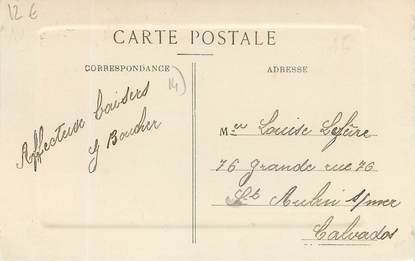 12 €
CARTE POSTALE
CORRESPONDANCE
14
Affectueux baisers
Y Boucher
ADRESSE
Mer Louise Lefevre
76 Grande rue 76
St Aubin s/mer
Calvados